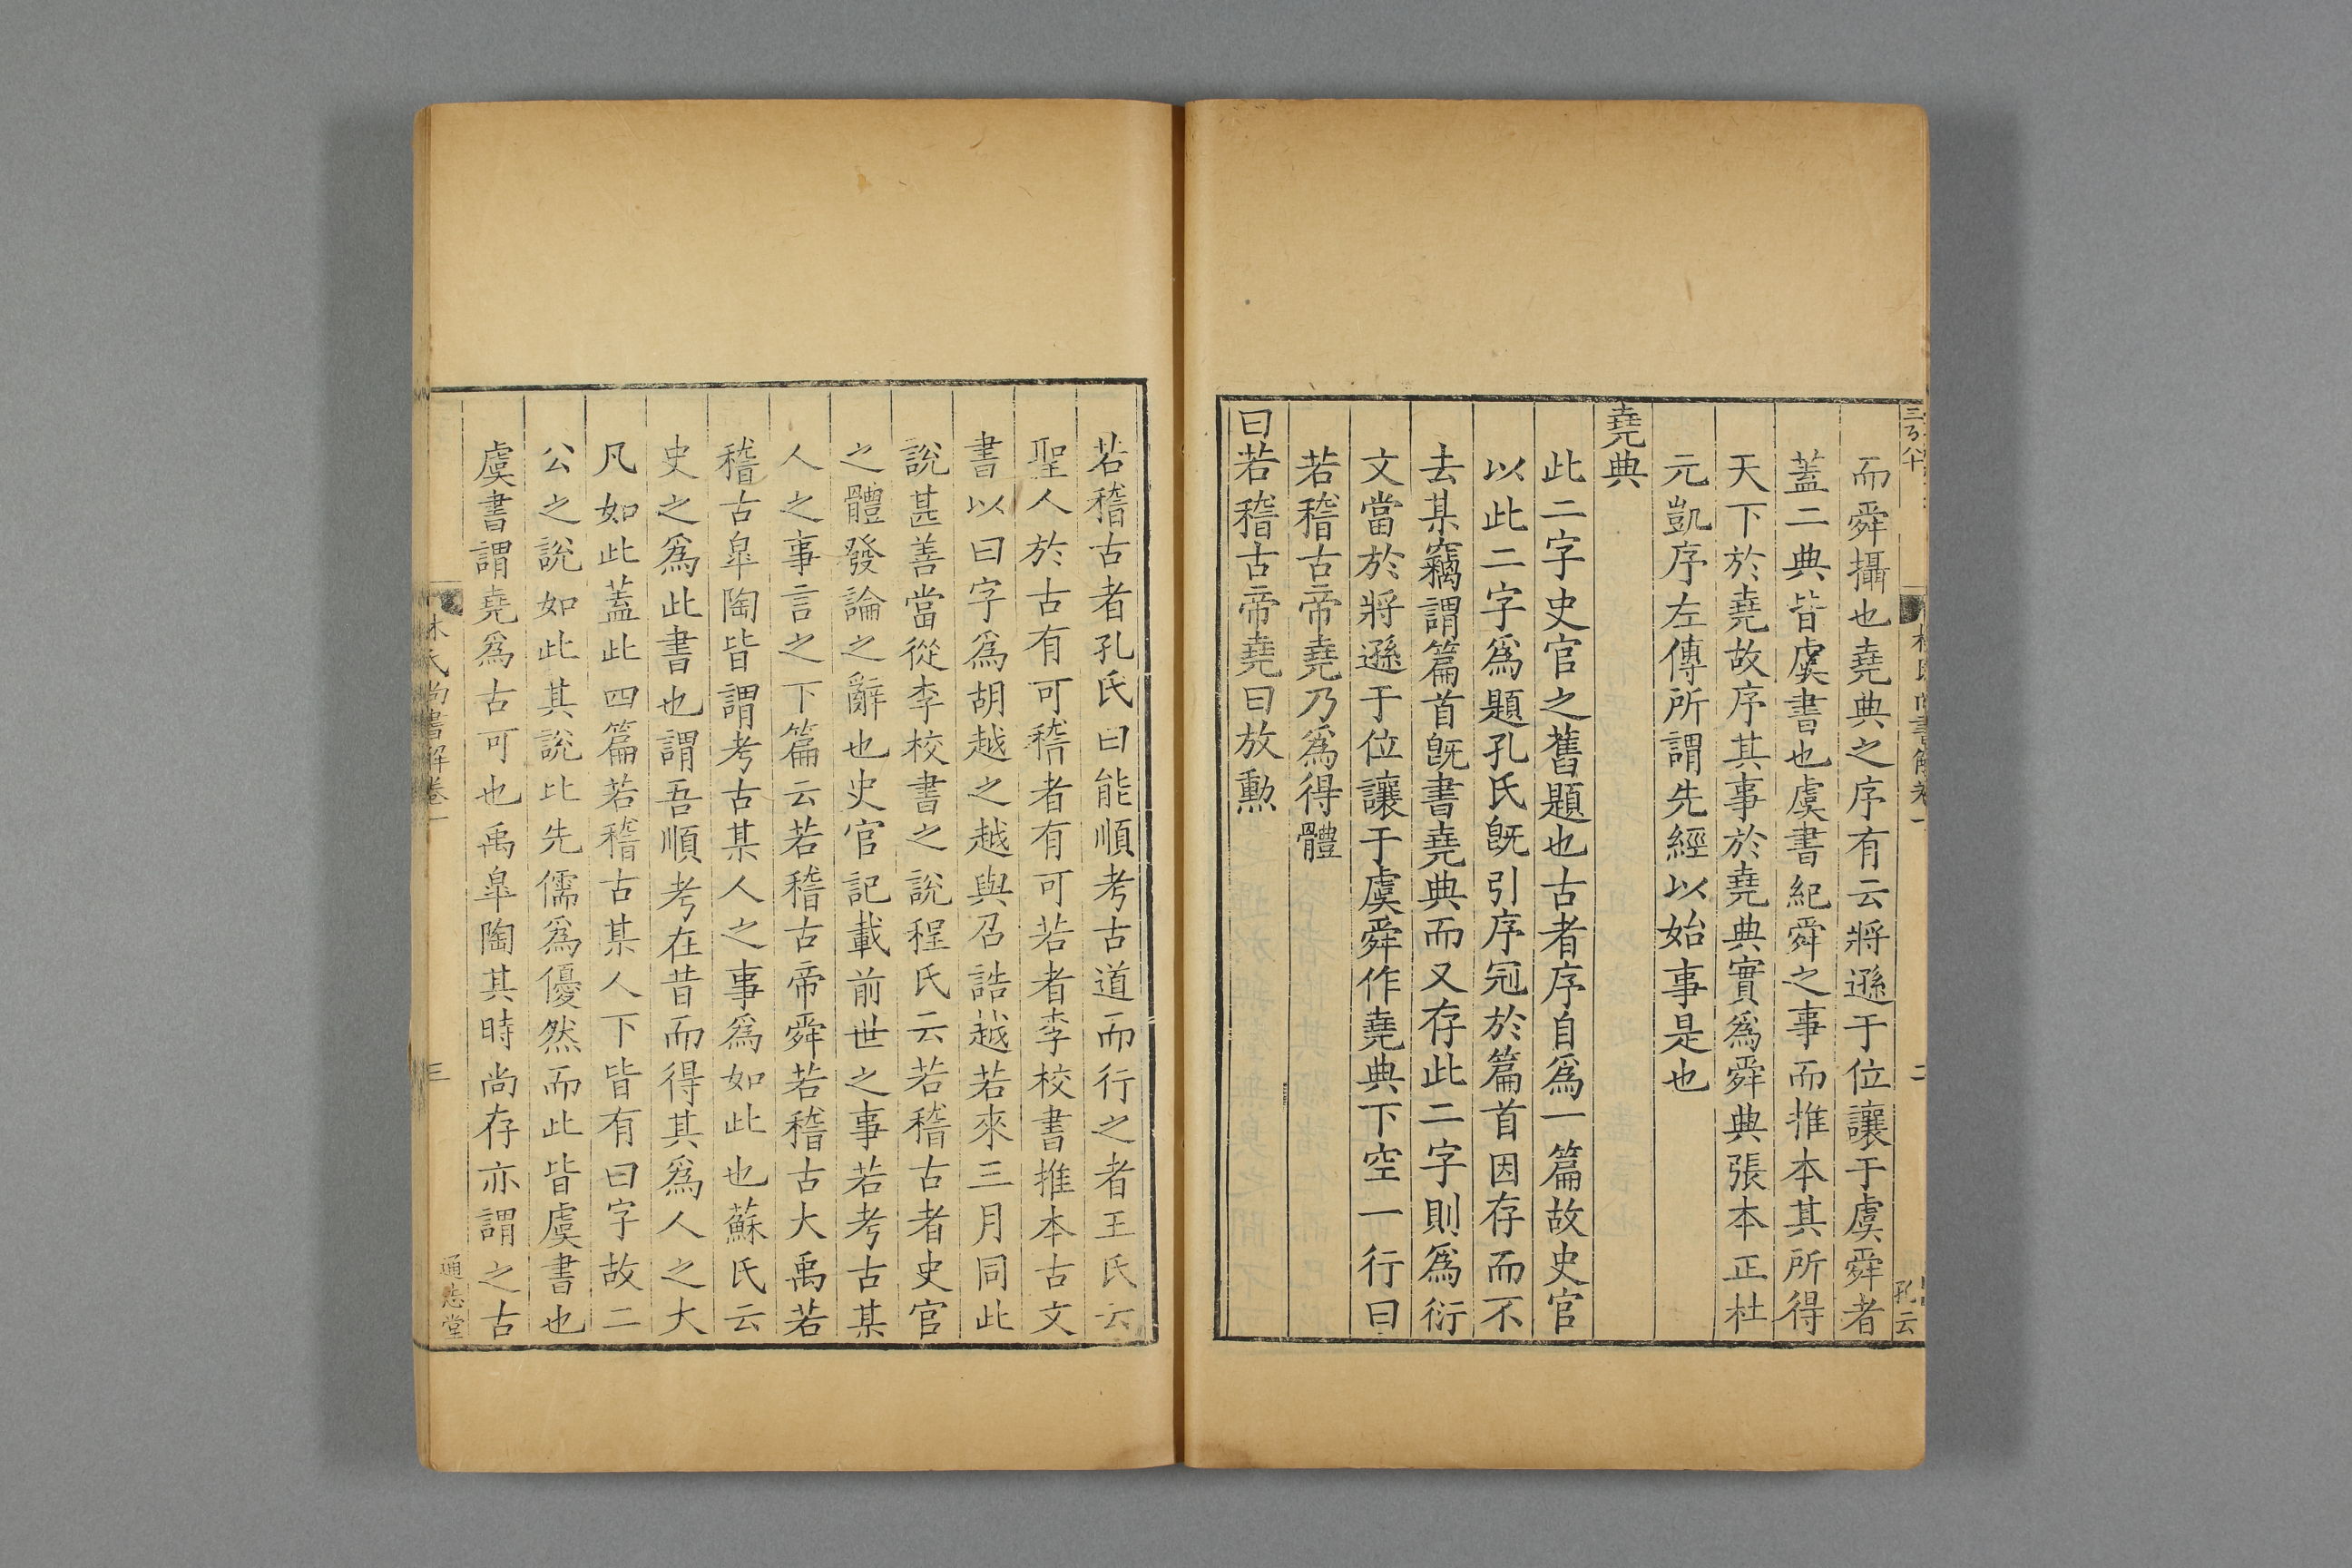 林氏尚書解卷一
二
孔云
而舜攝也堯典之序有云將遜于位讓于虞舜者
蓋二典皆虞書也虞書紀舜之事而推本其所得
天下於堯故序其事於堯典實為舜典張本正杜
元凱序左傳所謂先經以始事是也
堯典
此二字史官之舊題也古者序自為一篇故史官
以此二字為題孔氏旣引序冠於篇首因存而不
去某竊謂篇首旣書堯典而又存此二字則為衍
文當於將遜于位讓于虞舜作堯典下空一行曰
若稽古帝堯乃為得體
曰若稽古帝堯曰放勲
若稽古者孔氏曰能順考古道而行之者王氏云
聖人於古有可稽者有可若者李校書推本古文
書以曰字為胡越之越與召誥越若來三月同此
說甚善當從李校書之說程氏云若稽古者史官
之體發論之辭也史官記載前世之事若考古某
人之事言之下篇云若稽古帝舜若稽古大禹若
稽古皐陶皆謂考古某人之事為如此也蘇氏云
史之為此書也謂吾順考在昔而得其為人之大
凡如此蓋此四篇若稽古某人下皆有曰字故二
公之說如此其說比先儒為優然而此皆虞書也
虞書謂堯為古可也禹皐陶其時尚存亦謂之古
林氏尚書解卷一
三
通志堂